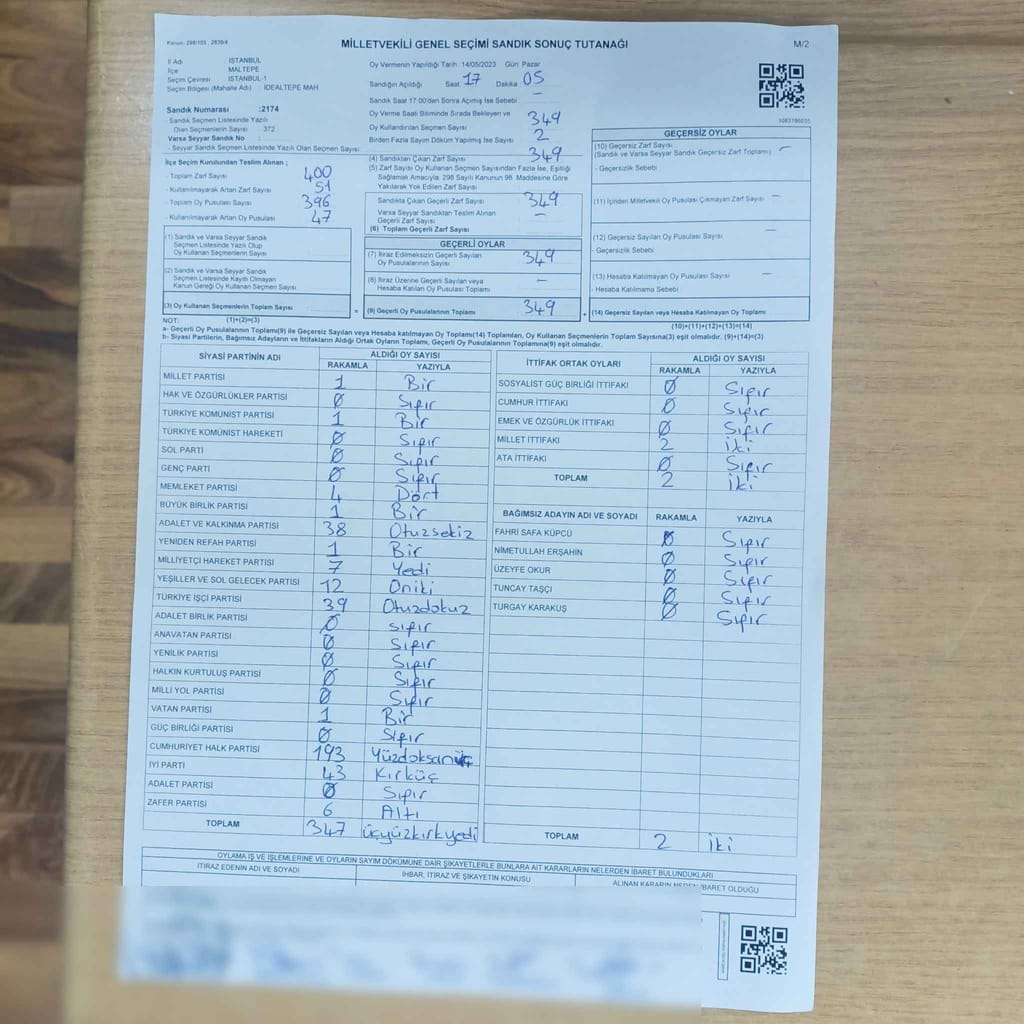 Kanun: 298/105 , 2839/4
MİLLETVEKİLİ GENEL SEÇİMİ SANDIK SONUÇ TUTANAĞI
M/2
İl Adı İSTANBUL
İlçe MALTEPE
Seçim Çevresi İSTANBUL-1
Seçim Bölgesi (Mahalle Adı) İDEALTEPE MAH
Oy Vermenin Yapıldığı Tarih: 14/05/2023 Gün: Pazar
Sandığın Açıldığı Saat 17 Dakika 05
Sandık Saat 17.00'den Sonra Açılmış İse Sebebi —
Oy Verme Saati Bitiminde Sırada Bekleyen ve
Oy Kullandırılan Seçmen Sayısı 349
Birden Fazla Sayım Döküm Yapılmış İse Sayısı 2
1083786035
Sandık Numarası :2174
- Sandık Seçmen Listesinde Yazılı
Olan Seçmenlerin Sayısı 372
Varsa Seyyar Sandık No :
- Seyyar Sandık Seçmen Listesinde Yazılı Olan Seçmen Sayısı
(4) Sandıktan Çıkan Zarf Sayısı 349
(5) Zarf Sayısı Oy Kullanan Seçmen Sayısından Fazla İse, Eşitliği
Sağlamak Amacıyla 298 Sayılı Kanunun 98. Maddesine Göre
Yakılarak Yok Edilen Zarf Sayısı
İlçe Seçim Kurulundan Teslim Alınan ;
- Toplam Zarf Sayısı 400
- Kullanılmayarak Artan Zarf Sayısı 51
- Toplam Oy Pusulası Sayısı 396
- Kullanılmayarak Artan Oy Pusulası 47
Sandıkta Çıkan Geçerli Zarf Sayısı 349
Varsa Seyyar Sandıktan Teslim Alınan
Geçerli Zarf Sayısı —
(6) Toplam Geçerli Zarf Sayısı
(1) Sandık ve Varsa Seyyar Sandık
Seçmen Listesinde Yazılı Olup
Oy Kullanan Seçmenlerin Sayısı
(2) Sandık ve Varsa Seyyar Sandık
Seçmen Listesinde Kayıtlı Olmayan
Kanun Gereği Oy Kullanan Seçmenlerin Sayısı
(3) Oy Kullanan Seçmenlerin Toplam Sayısı
GEÇERLİ OYLAR
(7) İtiraz Edilmeksizin Geçerli Sayılan
Oy Pusulalarının Sayısı 349
(8) İtiraz Üzerine Geçerli Sayılan veya
Hesaba Katılan Oy Pusulası Toplamı —
= (9) Geçerli Oy Pusulalarının Toplamı 349
GEÇERSİZ OYLAR
(10) Geçersiz Zarf Sayısı —
(Sandık ve Varsa Seyyar Sandık Geçersiz Zarf Toplamı)
- Geçersizlik Sebebi
(11) İçinden Milletvekili Oy Pusulası Çıkmayan Zarf Sayısı —
(12) Geçersiz Sayılan Oy Pusulası Sayısı —
- Geçersizlik Sebebi
(13) Hesaba Katılmayan Oy Pusulası Sayısı —
- Hesaba Katılmama Sebebi
+ (14) Geçersiz Sayılan veya Hesaba Katılmayan Oy Toplamı
NOT: (1)+(2)=(3)
(10)+(11)+(12)+(13)=(14)
a- Geçerli Oy Pusulalarının Toplamı(9) ile Geçersiz Sayılan veya Hesaba katılmayan Oy Toplamı(14) Toplamları, Oy Kullanan Seçmenlerin Toplam Sayısına(3) eşit olmalıdır. (9)+(14)=(3)
b- Siyasi Partilerin, Bağımsız Adayların ve İttifakların Aldığı Ortak Oyların Toplamı, Geçerli Oy Pusulalarının Toplamına(9) eşit olmalıdır.
SİYASİ PARTİNİN ADI ALDIĞI OY SAYISI
RAKAMLA YAZIYLA
MİLLET PARTİSİ 1 Bir
HAK VE ÖZGÜRLÜKLER PARTİSİ 0 Sıfır
TÜRKİYE KOMÜNİST PARTİSİ 1 Bir
TÜRKİYE KOMÜNİST HAREKETİ 0 Sıfır
SOL PARTİ 0 Sıfır
GENÇ PARTİ 0 Sıfır
MEMLEKET PARTİSİ 4 Dört
BÜYÜK BİRLİK PARTİSİ 1 Bir
ADALET VE KALKINMA PARTİSİ 38 Otuzsekiz
YENİDEN REFAH PARTİSİ 1 Bir
MİLLİYETÇİ HAREKET PARTİSİ 7 Yedi
YEŞİLLER VE SOL GELECEK PARTİSİ 12 Oniki
TÜRKİYE İŞÇİ PARTİSİ 39 Otuzdokuz
ADALET BİRLİK PARTİSİ 0 sıfır
ANAVATAN PARTİSİ 0 Sıfır
YENİLİK PARTİSİ 0 Sıfır
HALKIN KURTULUŞ PARTİSİ 0 Sıfır
MİLLİ YOL PARTİSİ 0 Sıfır
VATAN PARTİSİ 1 Bir
GÜÇ BİRLİĞİ PARTİSİ 0 Sıfır
CUMHURİYET HALK PARTİSİ 193 Yüzdoksanüç
İYİ PARTİ 43 Kırküç
ADALET PARTİSİ 0 Sıfır
ZAFER PARTİSİ 6 Altı
TOPLAM 347 üçyüzkırkyedi
İTTİFAK ORTAK OYLARI ALDIĞI OY SAYISI
RAKAMLA YAZIYLA
SOSYALİST GÜÇ BİRLİĞİ İTTİFAKI 0 Sıfır
CUMHUR İTTİFAKI 0 Sıfır
EMEK VE ÖZGÜRLÜK İTTİFAKI 0 Sıfır
MİLLET İTTİFAKI 2 iki
ATA İTTİFAKI 0 Sıfır
TOPLAM 2 iki
BAĞIMSIZ ADAYIN ADI VE SOYADI RAKAMLA YAZIYLA
FAHRİ SAFA KÜPCÜ 0 Sıfır
NİMETULLAH ERŞAHİN 0 Sıfır
ÜZEYFE OKUR 0 Sıfır
TUNCAY TAŞÇI 0 Sıfır
TURGAY KARAKUŞ 0 Sıfır
TOPLAM 2 iki
OYLAMA İŞ VE İŞLEMLERİNE VE OYLARIN SAYIM DÖKÜMÜNE DAİR ŞİKAYETLERLE BUNLARA AİT KARARLARIN NELERDEN İBARET BULUNDUKLARI
İTİRAZ EDENİN ADI VE SOYADI İHBAR, İTİRAZ VE ŞİKAYETİN KONUSU ALINAN KARARIN NEDEN İBARET OLDUĞU